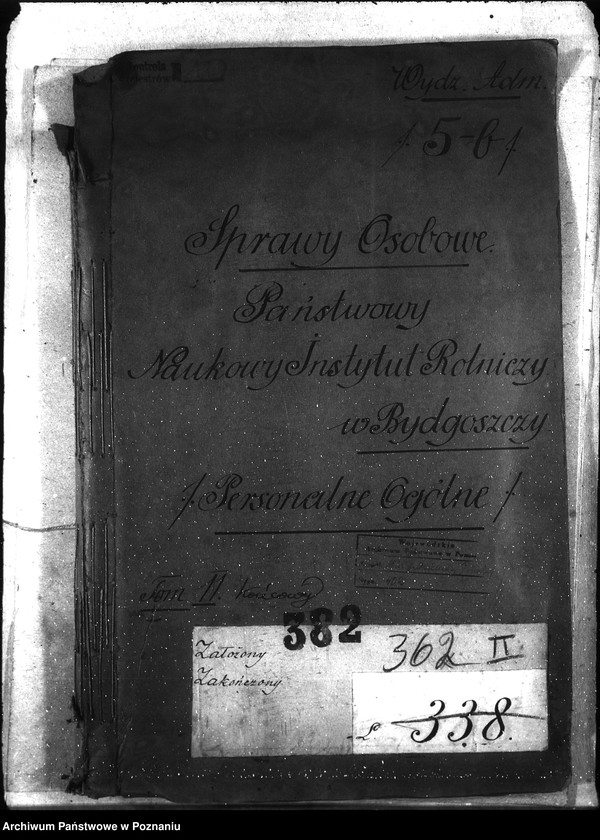 Wydz. Adm.
/ 5-b /
Sprawy Osobowe.
Państwowy
Naukowy Instytut Rolniczy
w Bydgoszczy
/ Personalne Ogólne /
Tom II. końcowy
382
Założony
Zakończony
362 II
L. 338.
Archiwum Państwowe w Poznaniu